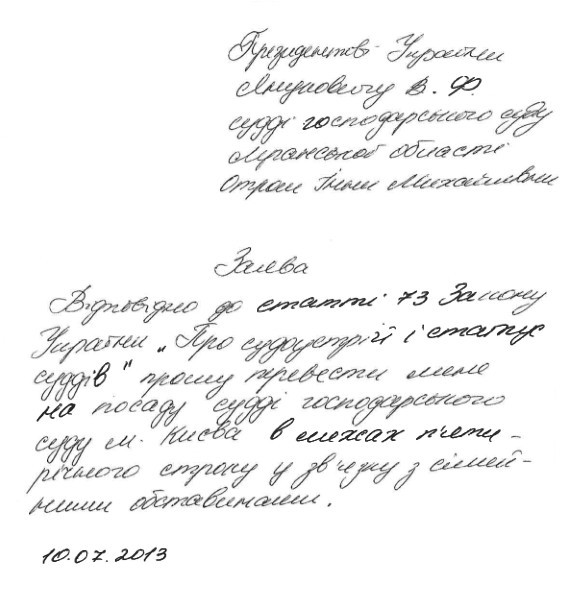 Президентові України
Януковичу В. Ф.
судді господарського суду
Луганської області
Отрош Інни Михайлівни
Заява
Відповідно до статті 73 Закону
України „Про судоустрій і статус
суддів" прошу перевести мене
на посаду судді господарського
суду м. Києва в межах п'яти-
річного строку у зв'язку з сімей-
ними обставинами.
10.07.2013